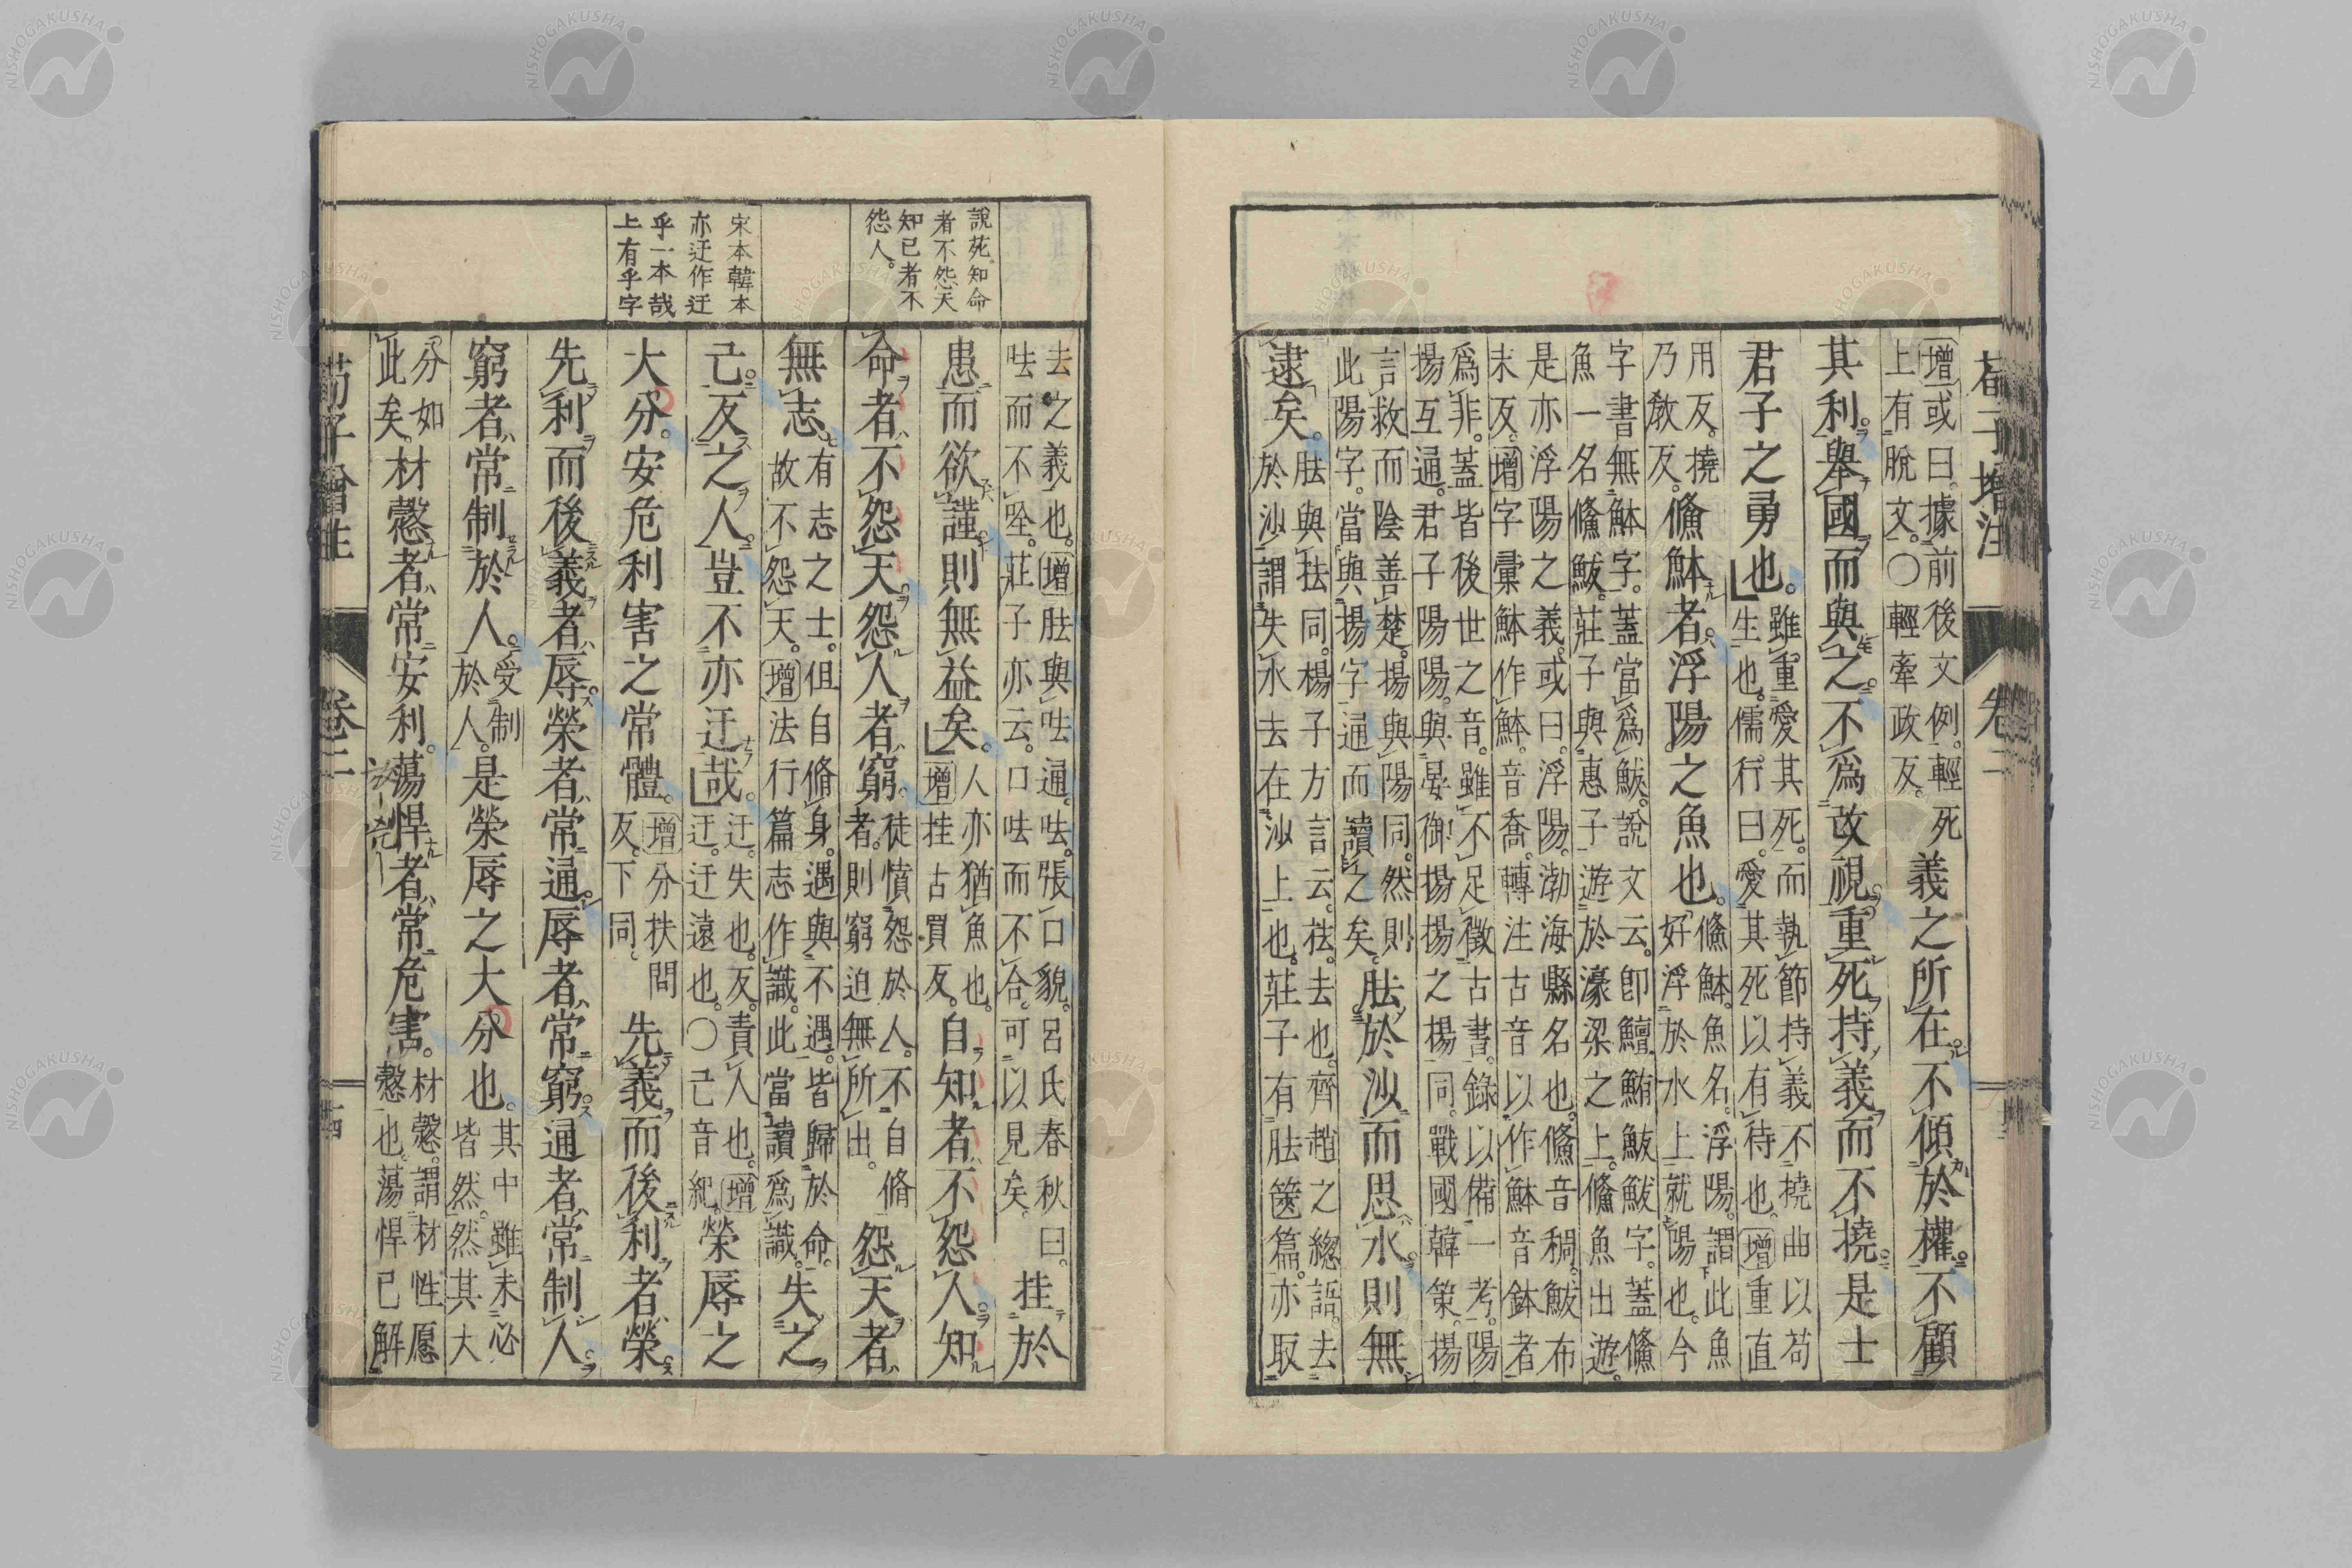 荀子增注 卷二
增或曰據前後文例輕死
上有脫文〇輕牽政反
義之所在不傾於權不顧
其利舉國而與之不爲改視重死持義而不撓是士
君子之勇也
雖重愛其死而執節持義不撓曲以苟
生也儒行曰愛其死以有待也增重直
用反撓
乃敎反
鯈䱁者浮陽之魚也
鯈䱁魚名浮陽謂此魚
好浮於水上就陽也今
字書無䱁字蓋當爲鮁說文云卽鱣鮪鮁鮁字蓋鯈
魚一名鯈鮁莊子與惠子遊於濠梁之上鯈魚出遊
是亦浮陽之義或曰浮陽渤海縣名也鯈音稠鮁布
末反增字彙䱁作䱁音喬轉注古音以作䱁音鉢者
爲非蓋皆後世之音雖不足徵古書錄以備一考陽
揚互通君子陽陽與晏御揚揚之揚同戰國韓策揚
言救而陰善楚揚與陽同然則
此陽字當與揚字通而讀之矣
胠於沙而思水則無
逮矣
胠與抾同楊子方言云抾去也齊趙之緫語去
於沙謂失水去在沙上也莊子有胠篋篇亦取
去之義也增胠與呿通呿張口貌呂氏春秋曰
呿而不唫莊子亦云口呿而不合可以見矣
挂於
患而欲謹則無益矣
人亦猶魚也
增挂古買反
自知者不怨人知
命者不怨天怨人者窮
徒憤怨於人不自脩
者則窮迫無所出
怨天者
無志
有志之士但自脩身遇與不遇皆歸於命
故不怨天增法行篇志作識此當讀爲識
失之
己反之人豈不亦迂哉
迂失也反責人也增
迂迂遠也〇己音紀
榮辱之
大分安危利害之常體
增分扶問
反下同
先義而後利者榮
先利而後義者辱榮者常通辱者常窮通者常制人
窮者常制於人
受制
於人
是榮辱之大分也
其中雖未必
皆然然其大
分如
此矣
材愨者常安利蕩悍者常危害
材愨謂材性愿
愨也蕩悍已解
說苑知命
者不怨天
知已者不
怨人
宋本韓本
亦迂作迃
乎一本哉
上有乎字
荀子增注 卷二 十四
NISHOGAKUSHA